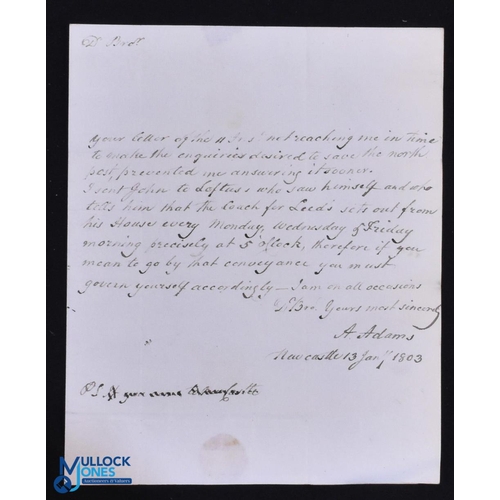 Dr Brotr
Your letter of the 11 Inst not reaching me in time
to make the enquiries desired to save the north
post, prevented me answering it sooner.
I sent John to Loftus's who saw himself and who
tells him that the Coach for Leeds sets out from
his House every Monday, Wednesday & Friday
morning precisely at 5 o'Clock, therefore if you
mean to go by that conveyance you must
govern yourself accordingly — I am on all occasions
Dr Bror Yours most sincerely
A. Adams
Newcastle 13 Jany 1803
PS.
MULLOCK
JONES
Auctioneers & Valuers